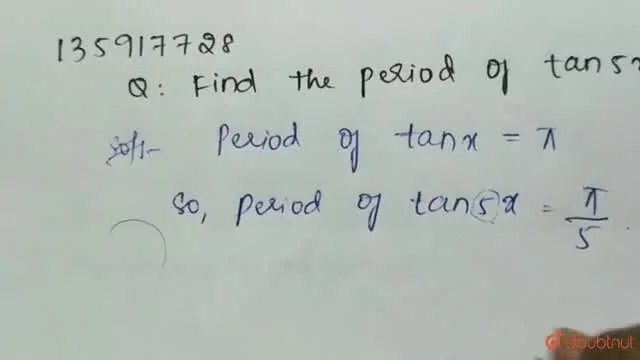 135917728
Q: Find the period of tan5x
Sol:- Period of tanx = π
So, period of tan5x = π/5.
doubtnut